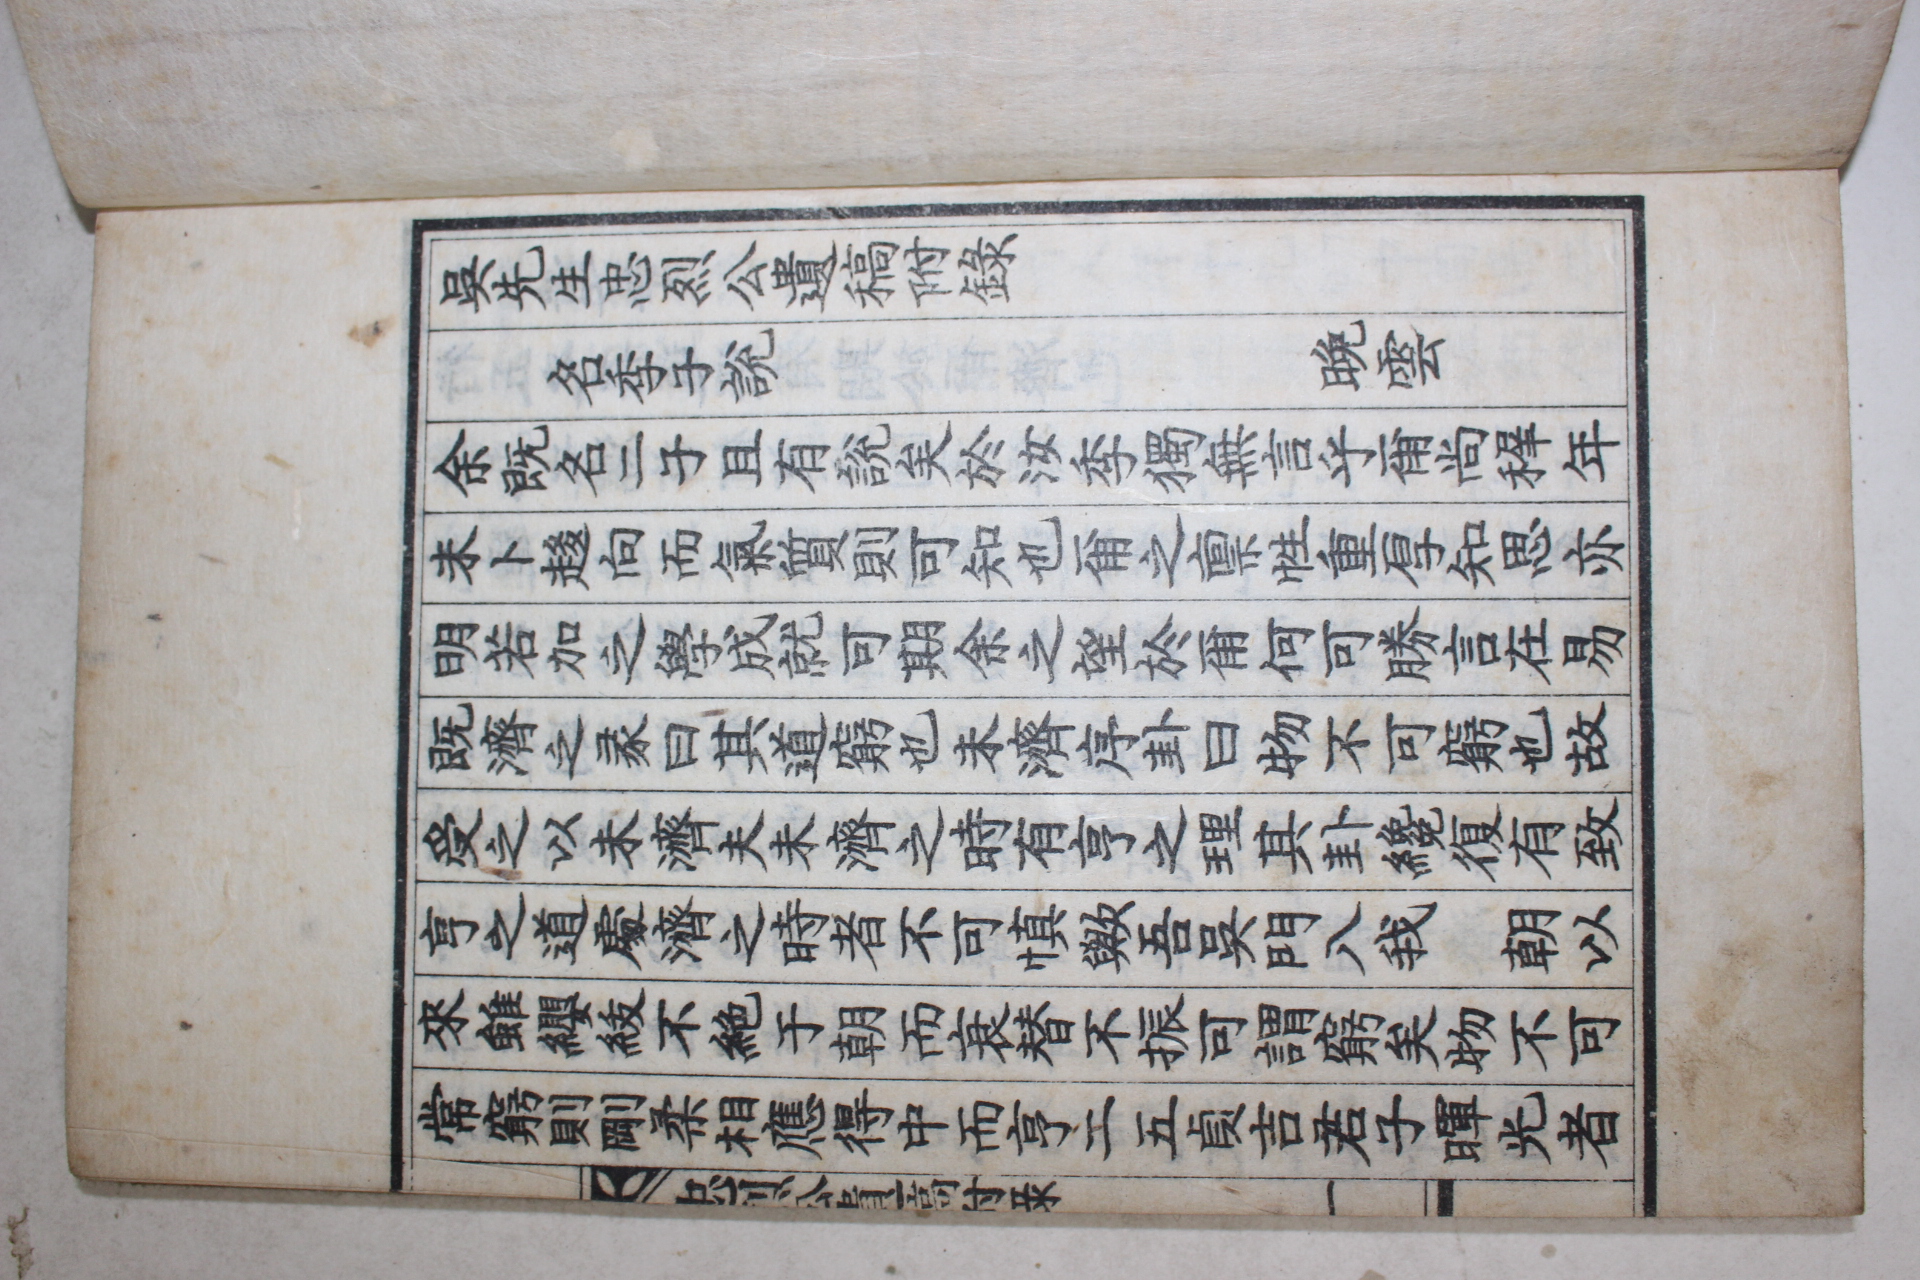 吳先生忠烈公遺稿附錄
名季子說 晩雲
余旣名二子且有說矣於汝季獨無言乎爾尙穉年
未卜趍向而氣質則可知也爾之禀性重厚知思亦
明若加之學成就可期余之望於爾何可勝言在易
旣濟之彖曰其道窮也未濟序卦曰物不可窮也故
受之以未濟夫未濟之時有亨之理其卦纔復有致
亨之道處濟之時者不可愼歟吾吳門入我 朝以
來雖纓綾不絶于朝而衰替不振可謂窮矣物不可
常窮則剛柔相應得中而亨二五貞吉君子暉光者
忠烈公遺稿附錄 一